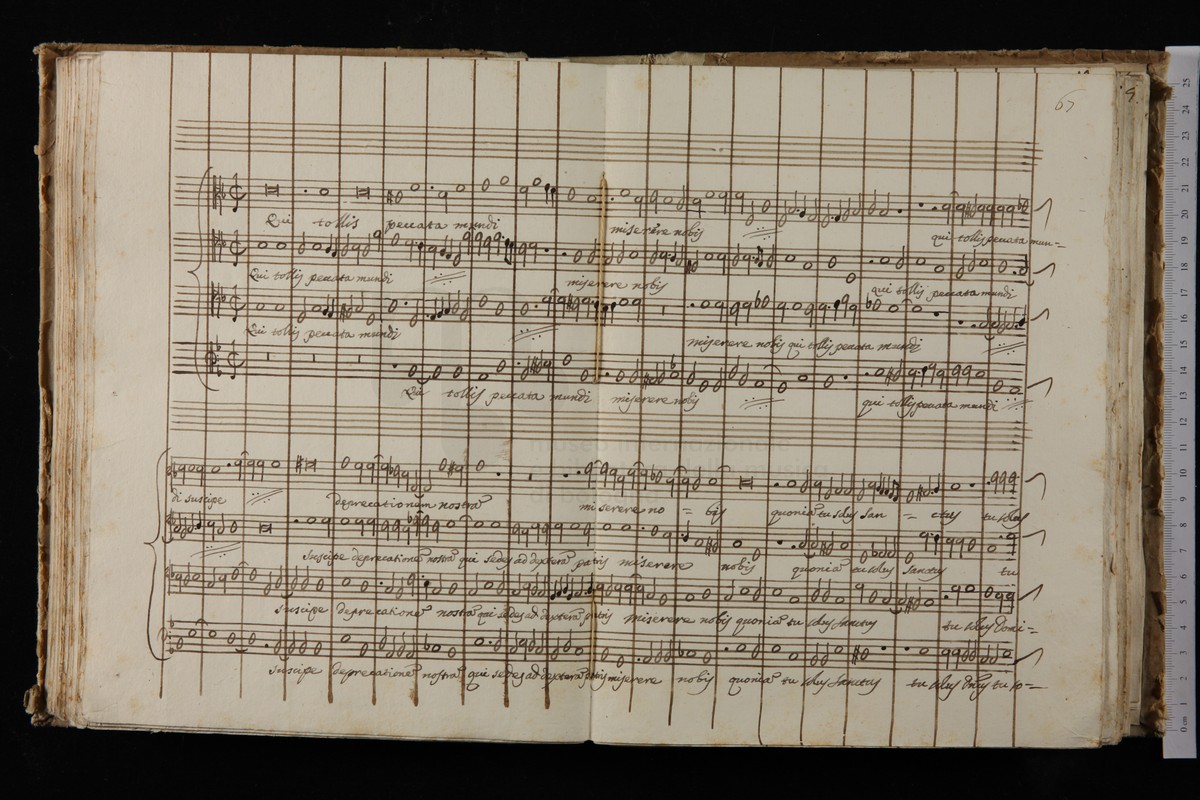 67
Qui tollis peccata mundi miserere nobis qui tollis peccata mun=
Qui tollis peccata mundi miserere nobis qui tollis peccata mundi
Qui tollis peccata mundi miserere nobis qui tollis peccata mundi
Qui tollis peccata mundi miserere nobis qui tollis peccata mundi
museo internazionale
di suscipe deprecationem nostrā miserere no = bis quoniā tu solus san = ctus tu solus
suscipe deprecationē nostrā qui sedes ad dexterā patris miserere nobis quoniā tu solus sanctus tu
suscipe deprecationē nostrā qui sedes ad dexterā patris miserere nobis quoniā tu solus sanctus tu solus Domi=
suscipe deprecationē nostrā qui sedes ad dexterā patris miserere nobis quoniā tu solus sanctus tu solus Dn̄s tu so=